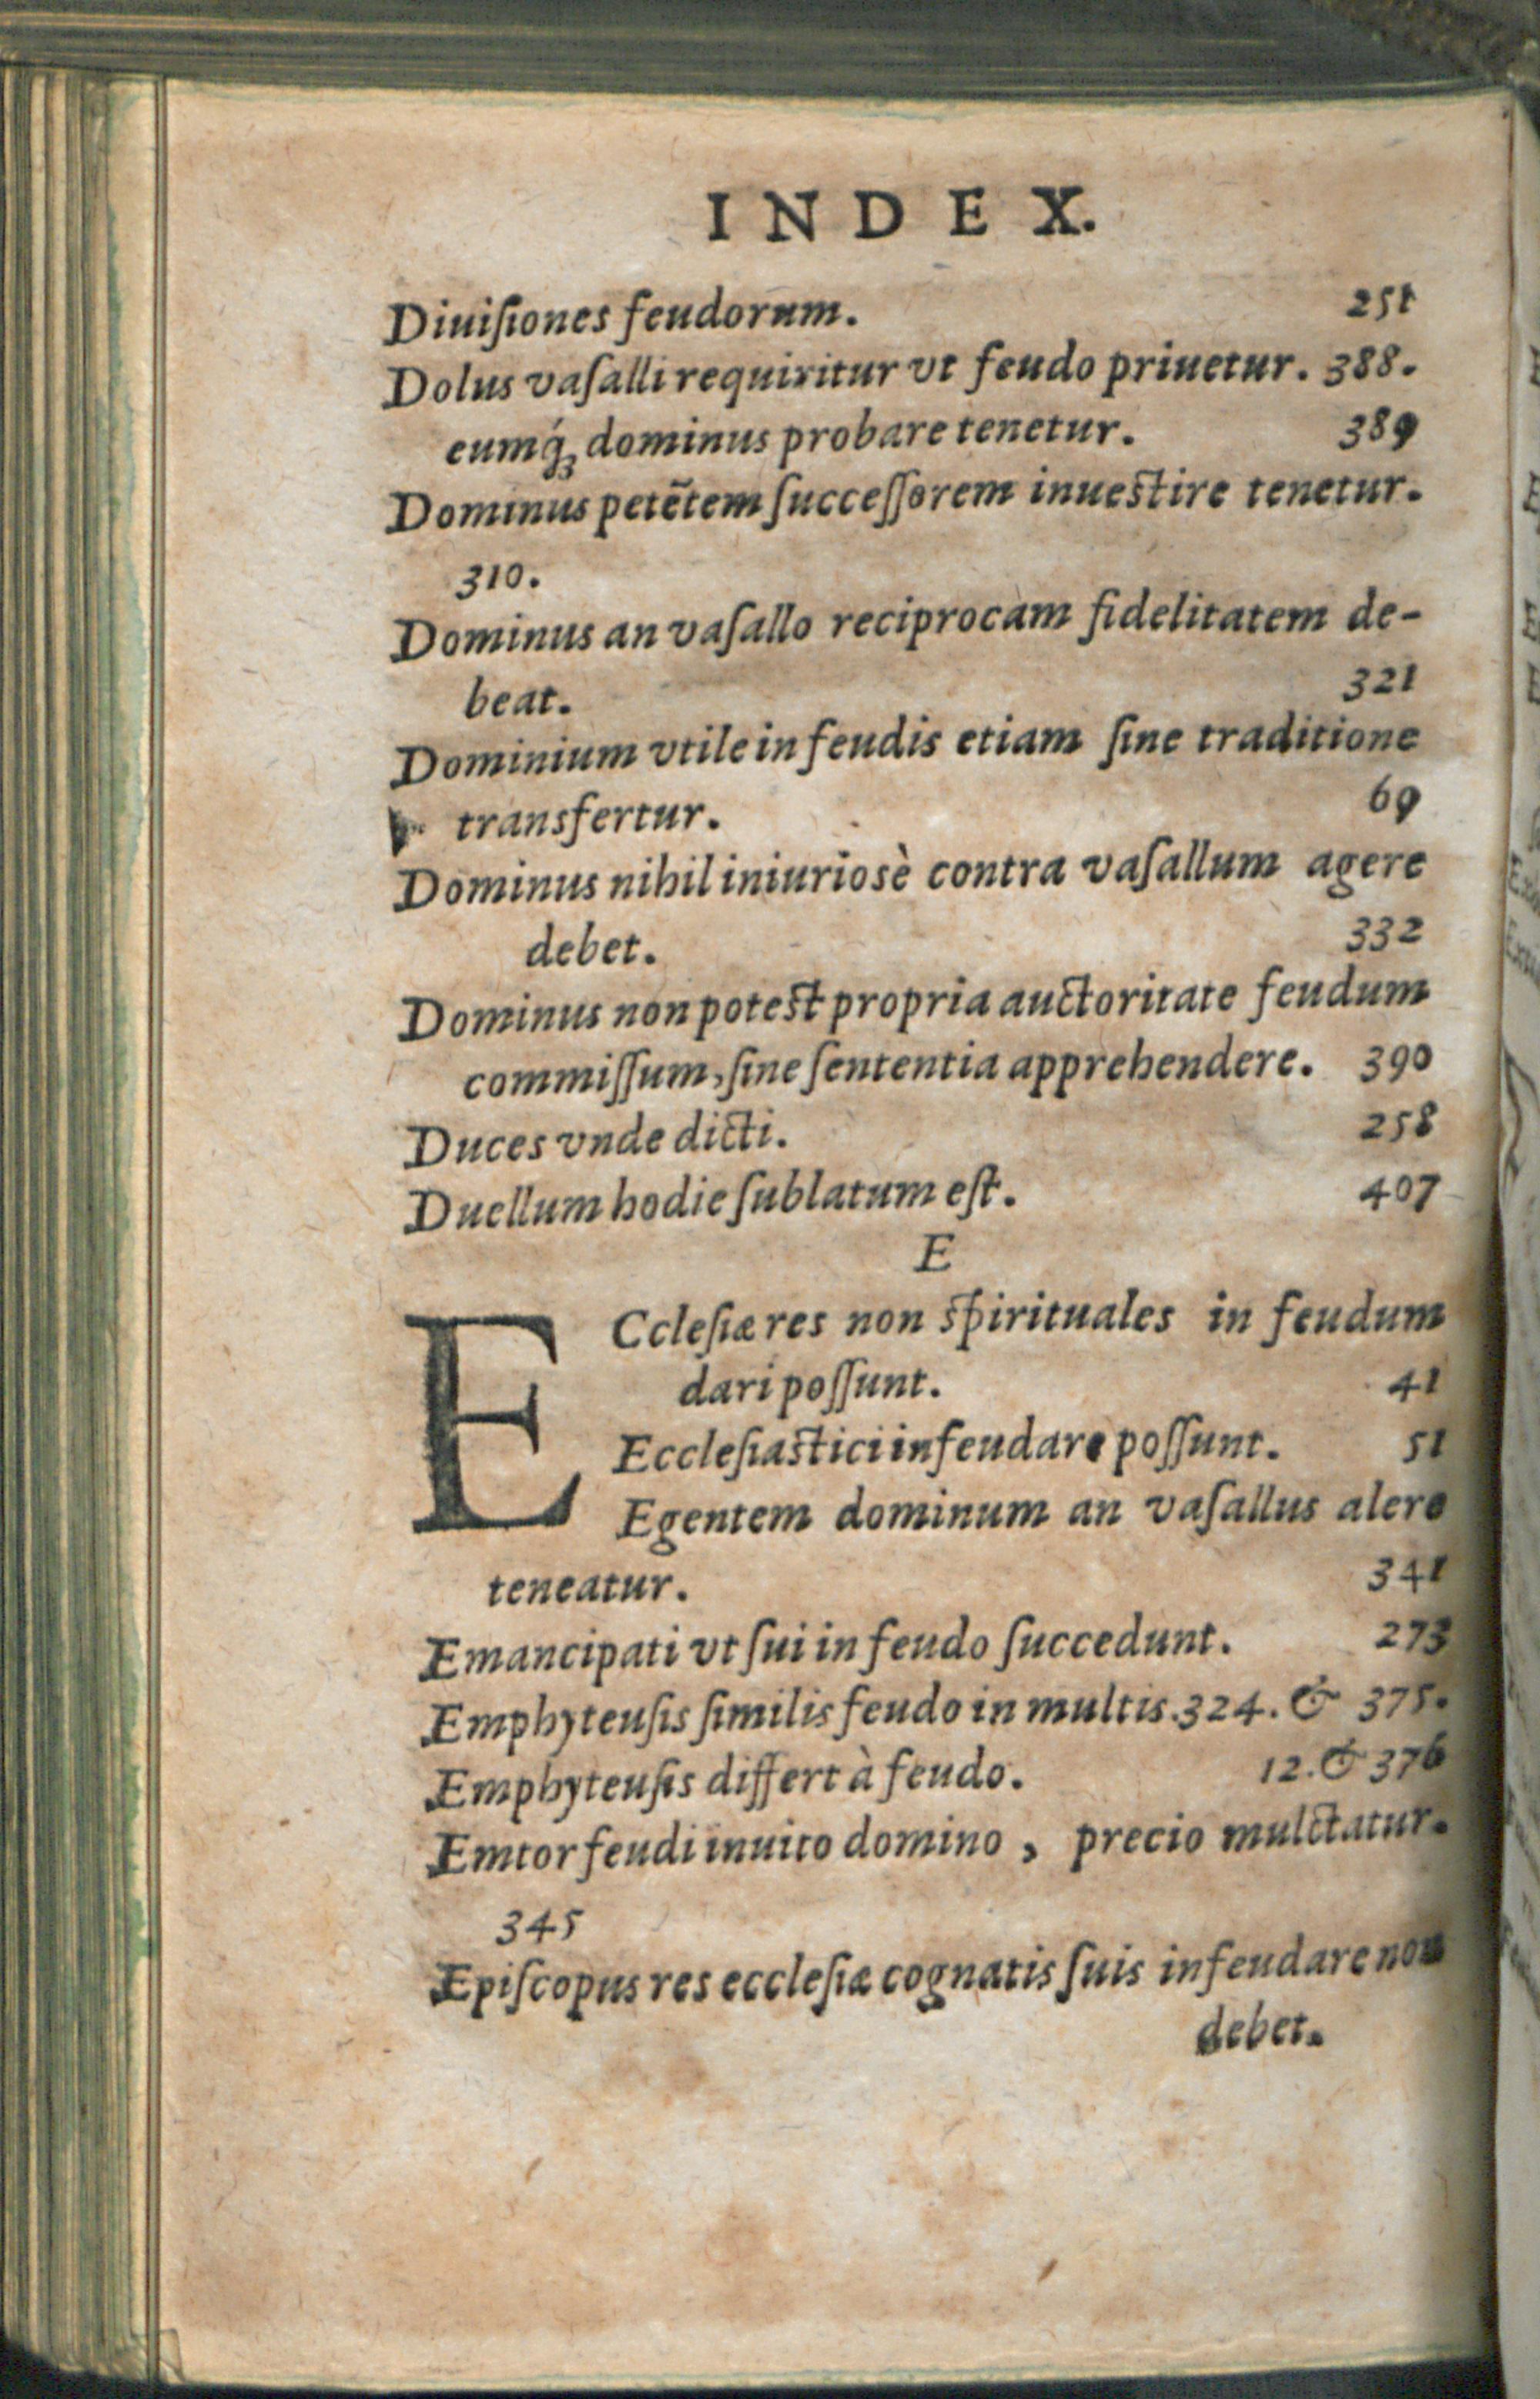 INDEX.
Diuiſiones feudorum. 251
Dolus vaſalli requiritur vt feudo priuetur. 388.
eumq́ꝫ dominus probare tenetur. 389
Dominus petẽtem ſucceſſorem inueſtire tenetur.
310.
Dominus an vaſallo reciprocam fidelitatem de-
beat. 321
Dominium vtile in feudis etiam ſine traditione
transfertur. 69
Dominus nihil iniuriosè contra vaſallum agere
debet. 332
Dominus non poteſt propria auctoritate feudum
commiſſum, ſine ſententia apprehendere. 390
Duces vnde dicti. 258
Duellum hodie ſublatum eſt. 407
E
ECcleſiæ res non ſpirituales in feudum
dari poſſunt. 41
Eccleſiaſtici infeudare poſſunt. 51
Egentem dominum an vaſallus alere
teneatur. 341
Emancipati vt ſui in feudo ſuccedunt. 273
Emphyteuſis ſimilis feudo in multis. 324. & 375.
Emphyteuſis differt à feudo. 12. & 376
Emtor feudi inuito domino, precio mulctatur.
345
Epiſcopus res eccleſiæ cognatis ſuis infeudare non
debet.